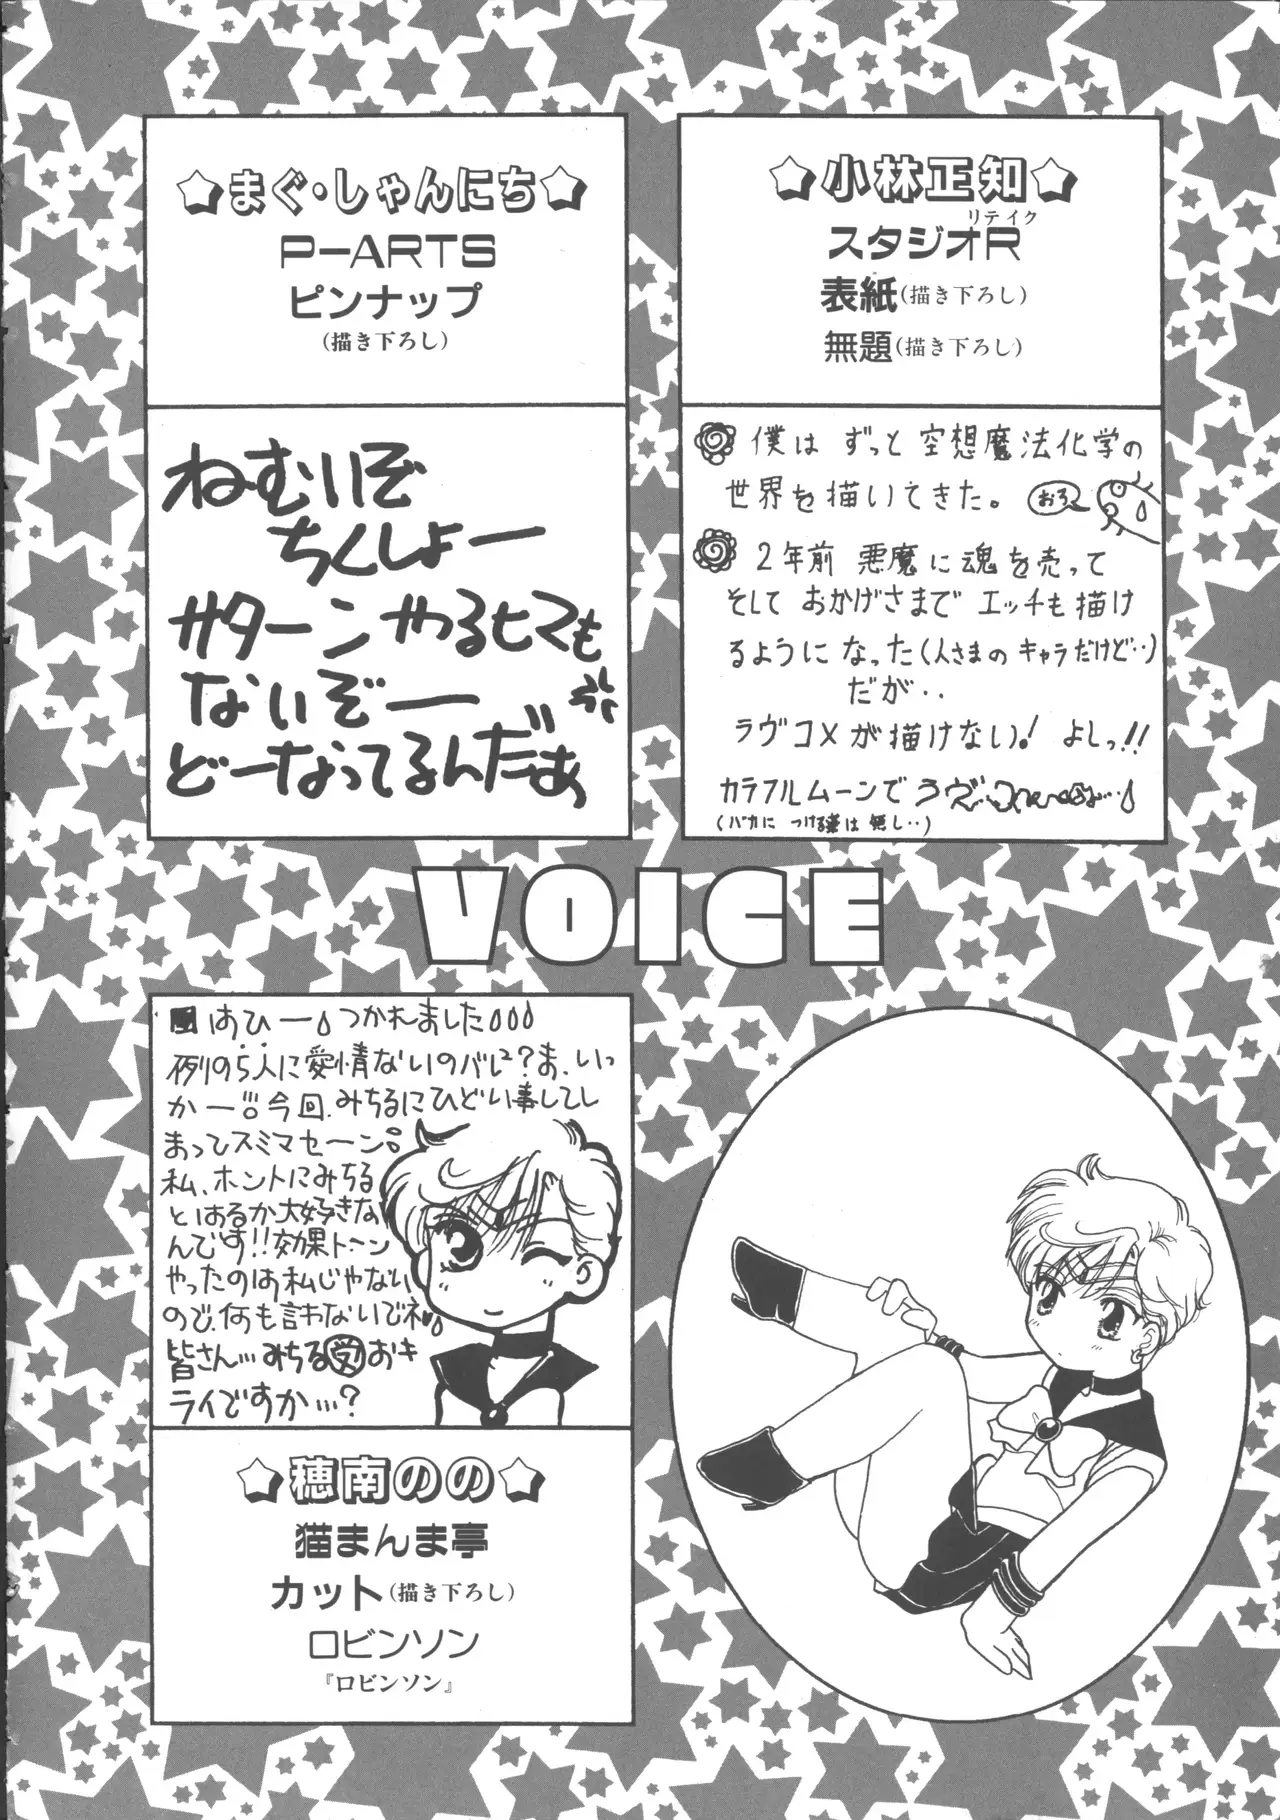 ☆まぐ・しゃんにち☆
P-ARTS
ピンナップ
(描き下ろし)
ねむいぞ
ちくしょー
サターンやるヒマも
ないぞー
どーなってるんだぁ
☆小林正知☆
リテイク
スタジオR
表紙(描き下ろし)
無題(描き下ろし)
僕は ずっと 空想魔法化学の
世界を描いてきた。
おろ
2年前 悪魔に魂を売って
そして おかげさまで エッチも描け
るように なった(人さまの キャラだけど‥)
だが‥
ラヴコメが描けない! よしっ!!
カラフルムーンで ラヴ
(バカに つける薬は 無し‥)
VOICE
はひー つかれました
例の5人に愛情ないのバレバレ?ま、いっ
かー!!今回、みちるにひどい事してし
まってスミマセーン
私、ホントにみちる
とはるか大好きな
んです!!効果トーン
やったのは私じゃない
ので、何も言わないでネ
皆さん…みちる受おキ
ライですか…?
☆穂南のの☆
猫まんま亭
カット(描き下ろし)
ロビンソン
『ロビンソン』